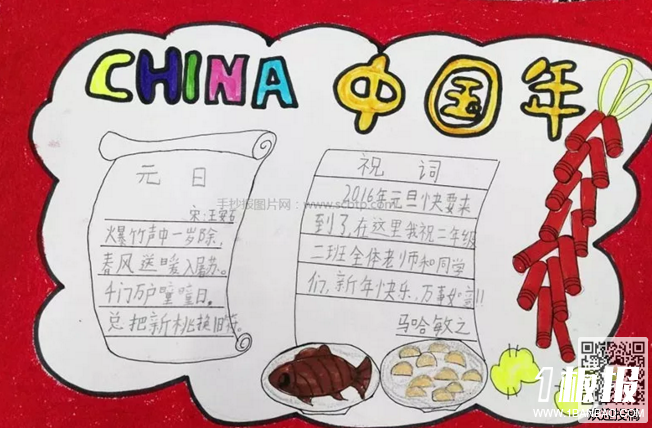 CHINA 中国年
元日
宋:王安石
爆竹声中一岁除,
春风送暖入屠苏。
千门万户曈曈日,
总把新桃换旧符。
祝词
2016年元旦快要来
到了,在这里我祝二年级
二班全体老师和同学
们,新年快乐、万事如意!!
马哈敏之
手抄报图片网:www.scbtp.com
1板报
www.1BANBAO.com
欢迎投稿